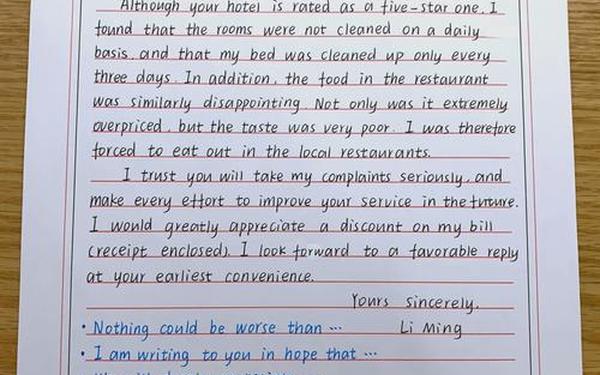 Although your hotel is rated as a five-star one, I
found that the rooms were not cleaned on a daily
basis, and that my bed was cleaned up only every
three days. In addition, the food in the restaurant
was similarly disappointing. Not only was it extremely
overpriced, but the taste was very poor. I was therefore
forced to eat out in the local restaurants.
I trust you will take my complaints seriously, and
make every effort to improve your service in the future.
I would greatly appreciate a discount on my bill
(receipt enclosed). I look forward to a favorable reply
at your earliest convenience.
Yours sincerely,
• Nothing could be worse than ... Li Ming
• I am writing to you in hope that ...